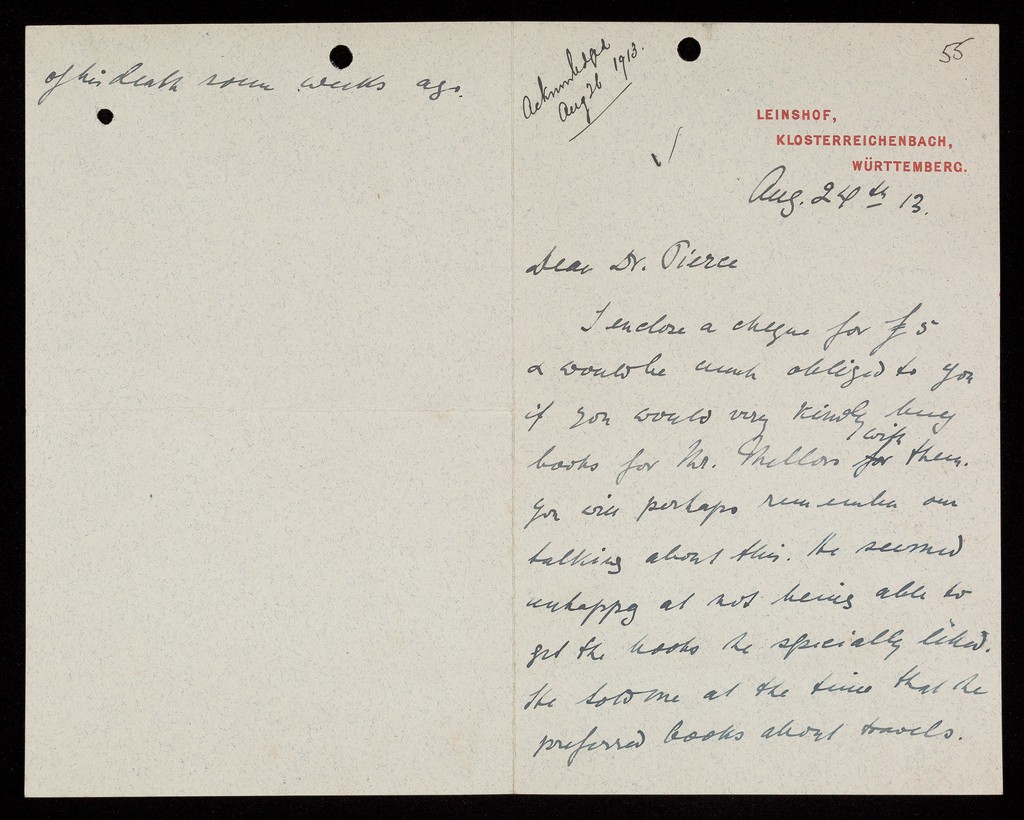 of his death some weeks ago.
Acknowledged
Aug 26 1913.
55
LEINSHOF,
KLOSTERREICHENBACH,
WÜRTTEMBERG.
Aug. 24th 13.
Dear Dr. Pierce
I enclose a cheque for £5
& would be much obliged to you
if you would very kindly buy
books for Mr. Mellors for with them.
You will perhaps remember our
talking about this. He seemed
unhappy at not being able to
get the books he specially liked.
He told me at the time that he
preferred books about travels.